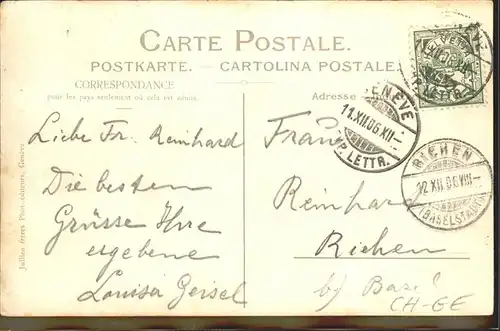 CARTE POSTALE.
POSTKARTE. — CARTOLINA POSTALE.
CORRESPONDANCE
pour les pays seulement où cela est admis.
Adresse
GENÈVE
11.XII.06.XII—
EXP. LETTR.
RIEHEN
12.XII.06.VIII—
(BASELSTADT)
Liebe Fr. Reinhard
Die besten
Grüsse Ihre
ergebene
Louisa Geisel
Frau
Reinhard
Riehen
b/ Basel
CH-GE
Jullien frères Phot.-éditeurs, Genève